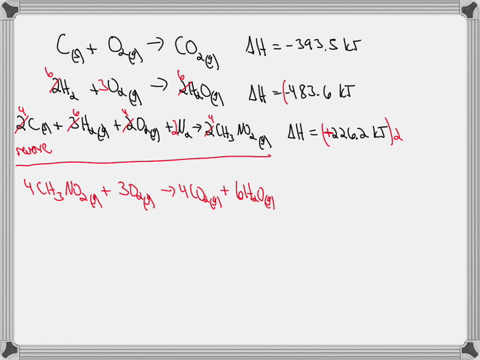 C(s) + O2(g) → CO2(g) ΔH = -393.5 kJ
6 2H2 + 3O2(g) → 6 2H2O(g) ΔH = (-483.6 kJ
4 2C(s) + 6 3H2(g) + 4 2O2(g) + 2N2 → 4 2CH3NO2(g) ΔH = (+226.2 kJ)2
reverse
4CH3NO2(g) + 3O2(g) → 4CO2(g) + 6H2O(g)